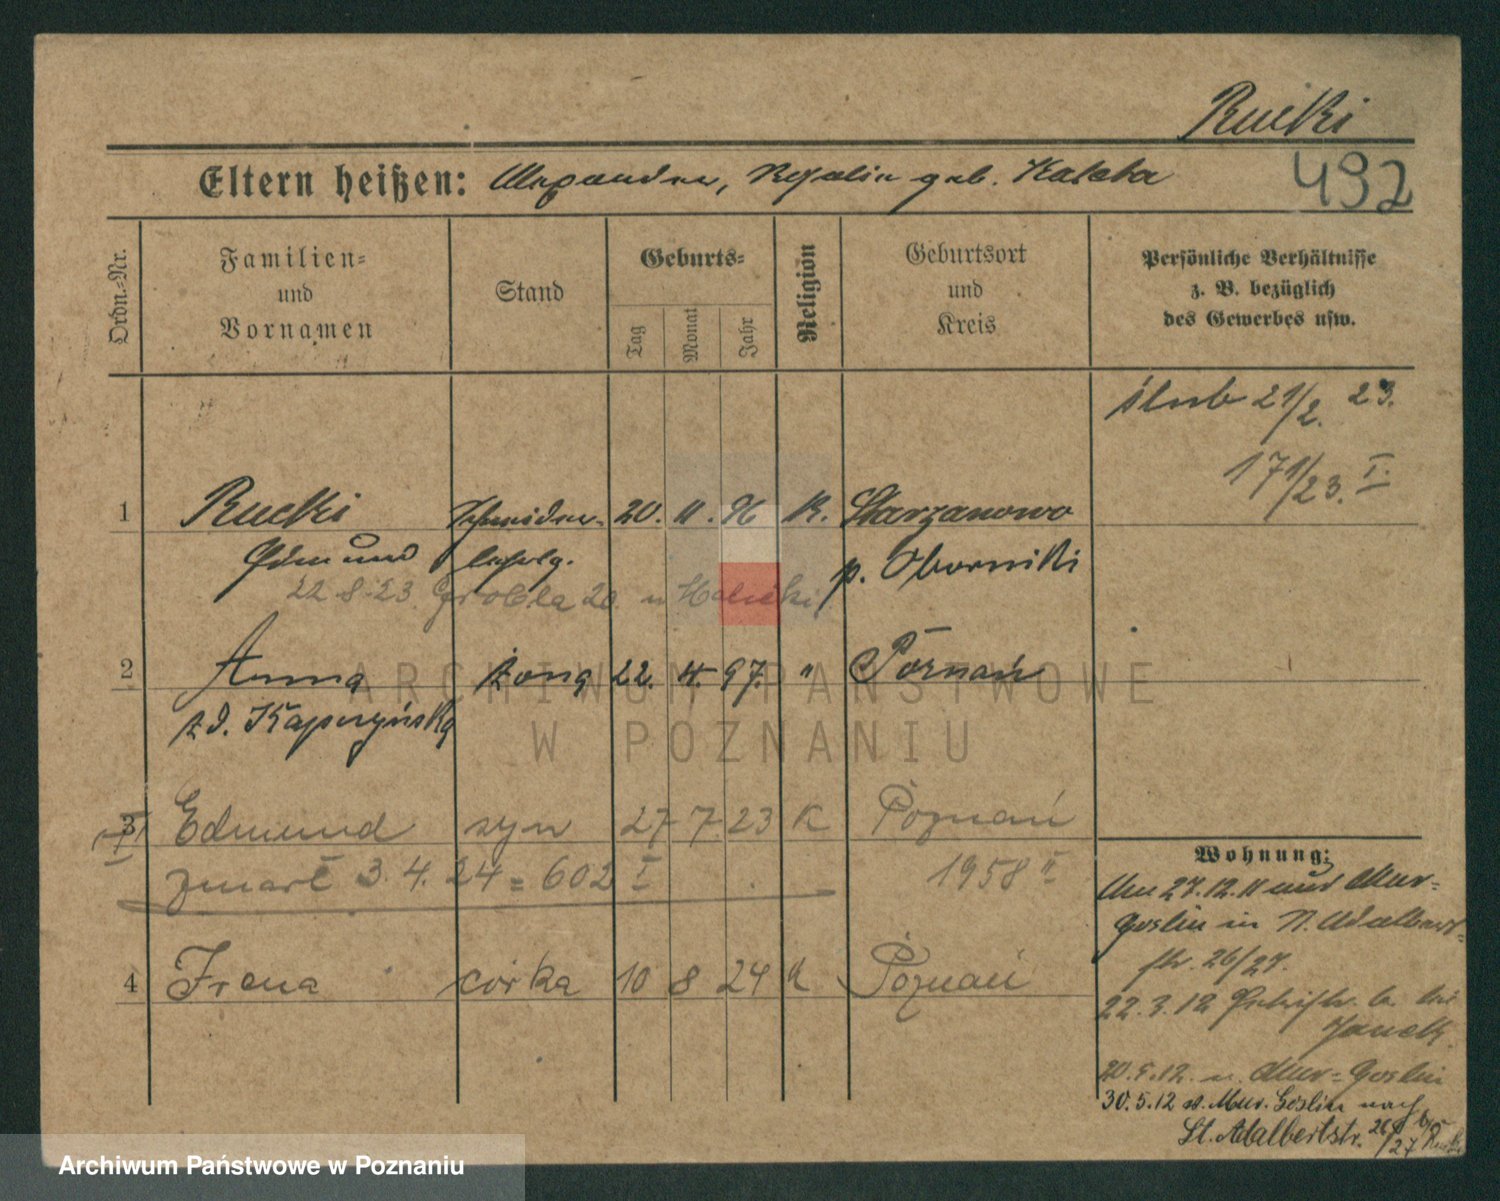 Rucki
Eltern heißen: Alexander, Rosalie geb. Kaseba
492
Ordn.-Nr.
Familien-
und
Vornamen
Stand
Geburts-
Tag
Monat
Jahr
Religion
Geburtsort
und
Kreis
Persönliche Verhältnisse
z. B. bezüglich
des Gewerbes usw.
ślub 21/2. 23.
171/23. I.
1 Rucki Schneider- 20. 11. 96 K. Starzanowo
Edmund lehrlg. p. Oborniki
22.8.23. Grobla 20. u
2 Anna żona 22. 4. 97. " Poznań
zd. Kapczyńska
3 Edmund syn 27 7 23 K Poznań
zmarł 3.4.24 = 602 I 1958 II
4 Irena córka 10 8 24 K Poznań
Wohnung:
Am 27.12.11 aus Mur-
Goslin in N. Adalbert-
str. 26/27.
22.3.12 b. bei
20.5.12. n. Mur-Goslin
30.5.12 v. Mur. Goslin nach
St. Adalbertstr. 26/27 b/
ARCHIWUM PAŃSTWOWE
W POZNANIU
Archiwum Państwowe w Poznaniu